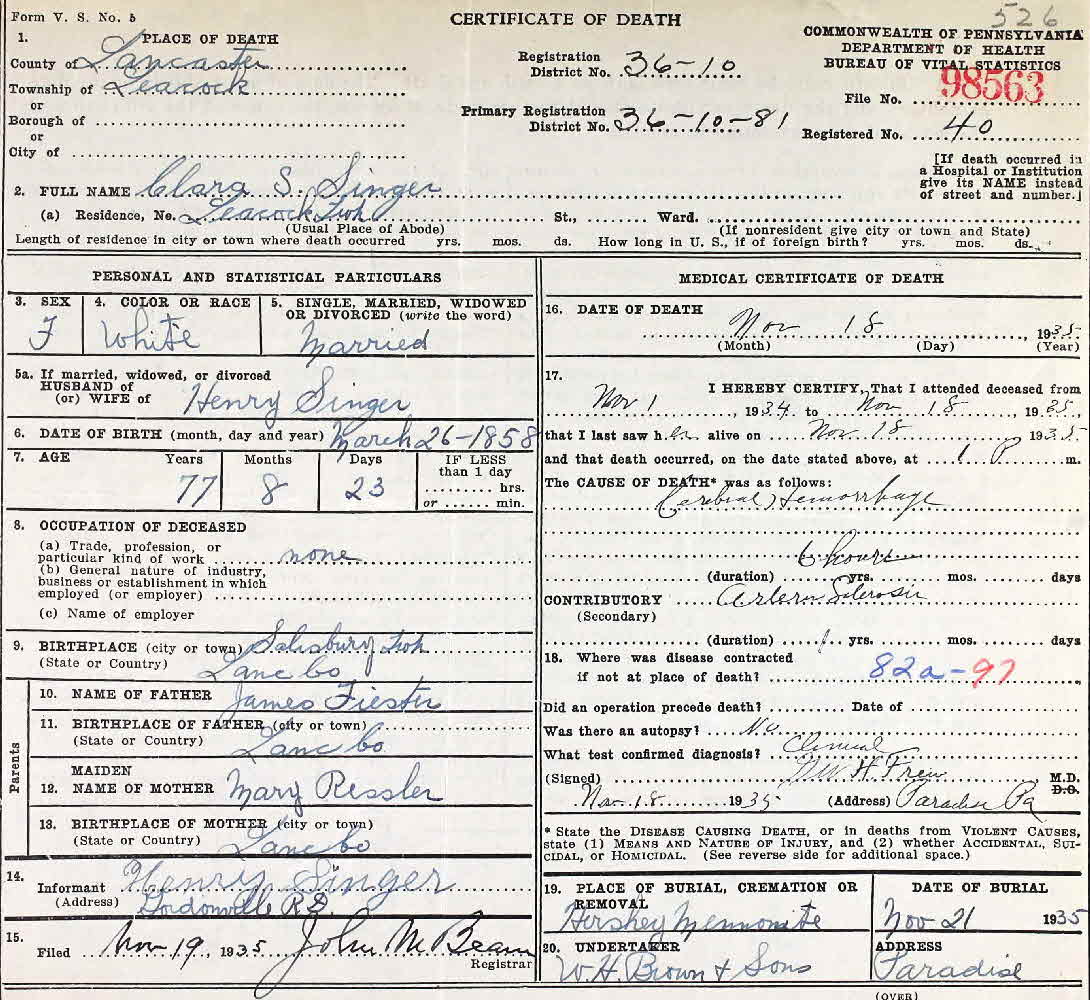 Form V. S. No. 5
CERTIFICATE OF DEATH
526
COMMONWEALTH OF PENNSYLVANIA
DEPARTMENT OF HEALTH
BUREAU OF VITAL STATISTICS
1. PLACE OF DEATH
County of Lancaster
Township of Leacock
or
Borough of
or
City of
Registration District No. 36-10
Primary Registration District No. 36-10-81
File No. 98563
Registered No. 40
[If death occurred in a Hospital or Institution give its NAME instead of street and number.]
2. FULL NAME Clara S. Singer
(a) Residence, No. Leacock Twp St., Ward.
(Usual Place of Abode) (If nonresident give city or town and State)
Length of residence in city or town where death occurred yrs. mos. ds. How long in U. S., if of foreign birth? yrs. mos. ds.
PERSONAL AND STATISTICAL PARTICULARS
3. SEX 4. COLOR OR RACE 5. SINGLE, MARRIED, WIDOWED OR DIVORCED (write the word)
F White Married
5a. If married, widowed, or divorced
HUSBAND of
(or) WIFE of Henry Singer
6. DATE OF BIRTH (month, day and year) March 26-1858
7. AGE Years Months Days IF LESS than 1 day
77 8 23 hrs.
or min.
8. OCCUPATION OF DECEASED
(a) Trade, profession, or
particular kind of work none
(b) General nature of industry,
business or establishment in which
employed (or employer)
(c) Name of employer
9. BIRTHPLACE (city or town) Salisbury Twp
(State or Country) Lanc Co
Parents
10. NAME OF FATHER James Fiester
11. BIRTHPLACE OF FATHER (city or town)
(State or Country) Lanc Co
MAIDEN
12. NAME OF MOTHER Mary Ressler
13. BIRTHPLACE OF MOTHER (city or town)
(State or Country) Lanc Co
14.
Informant Henry Singer
(Address) Gordonville RD.
15.
Filed Nov 19, 1935 John M Beam
Registrar
MEDICAL CERTIFICATE OF DEATH
16. DATE OF DEATH
Nov 18, 1935
(Month) (Day) (Year)
17.
I HEREBY CERTIFY, That I attended deceased from
Nov 1, 1934 to Nov 18, 1935,
that I last saw her alive on Nov 18, 1935
and that death occurred, on the date stated above, at 1 P m.
The CAUSE OF DEATH* was as follows:
Cerebral Hemorrhage
6 hours
(duration) yrs. mos. days
CONTRIBUTORY Arterio Sclerosis
(Secondary)
(duration) 1 yrs. mos. days
18. Where was disease contracted
if not at place of death? 82a-97
Did an operation precede death? Date of
Was there an autopsy? No
What test confirmed diagnosis? Clinical
(Signed) Frew M.D.
D.O.
Nov 18 1935 (Address) Paradise Pa
* State the DISEASE CAUSING DEATH, or in deaths from VIOLENT CAUSES,
state (1) MEANS AND NATURE OF INJURY, and (2) whether ACCIDENTAL, SUI-
CIDAL, or HOMICIDAL. (See reverse side for additional space.)
19. PLACE OF BURIAL, CREMATION OR REMOVAL DATE OF BURIAL
Hershey Mennonite Nov 21 1935
20. UNDERTAKER ADDRESS
W. H. Brown & Sons Paradise
(OVER)